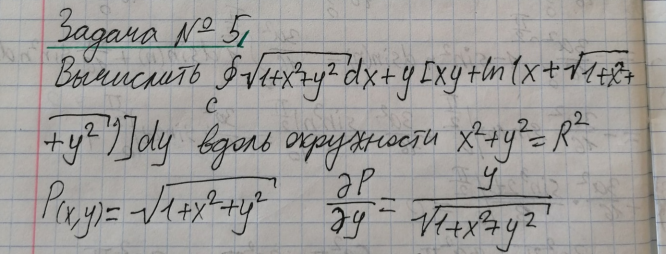 Задача № 5.
Вычислить ∮_C √(1+x²+y²) dx + y[xy+ln(x+√(1+x²+
+y²))]dy вдоль окружности x²+y²=R²
P(x,y)=√(1+x²+y²) ∂P/∂y = y/√(1+x²+y²)